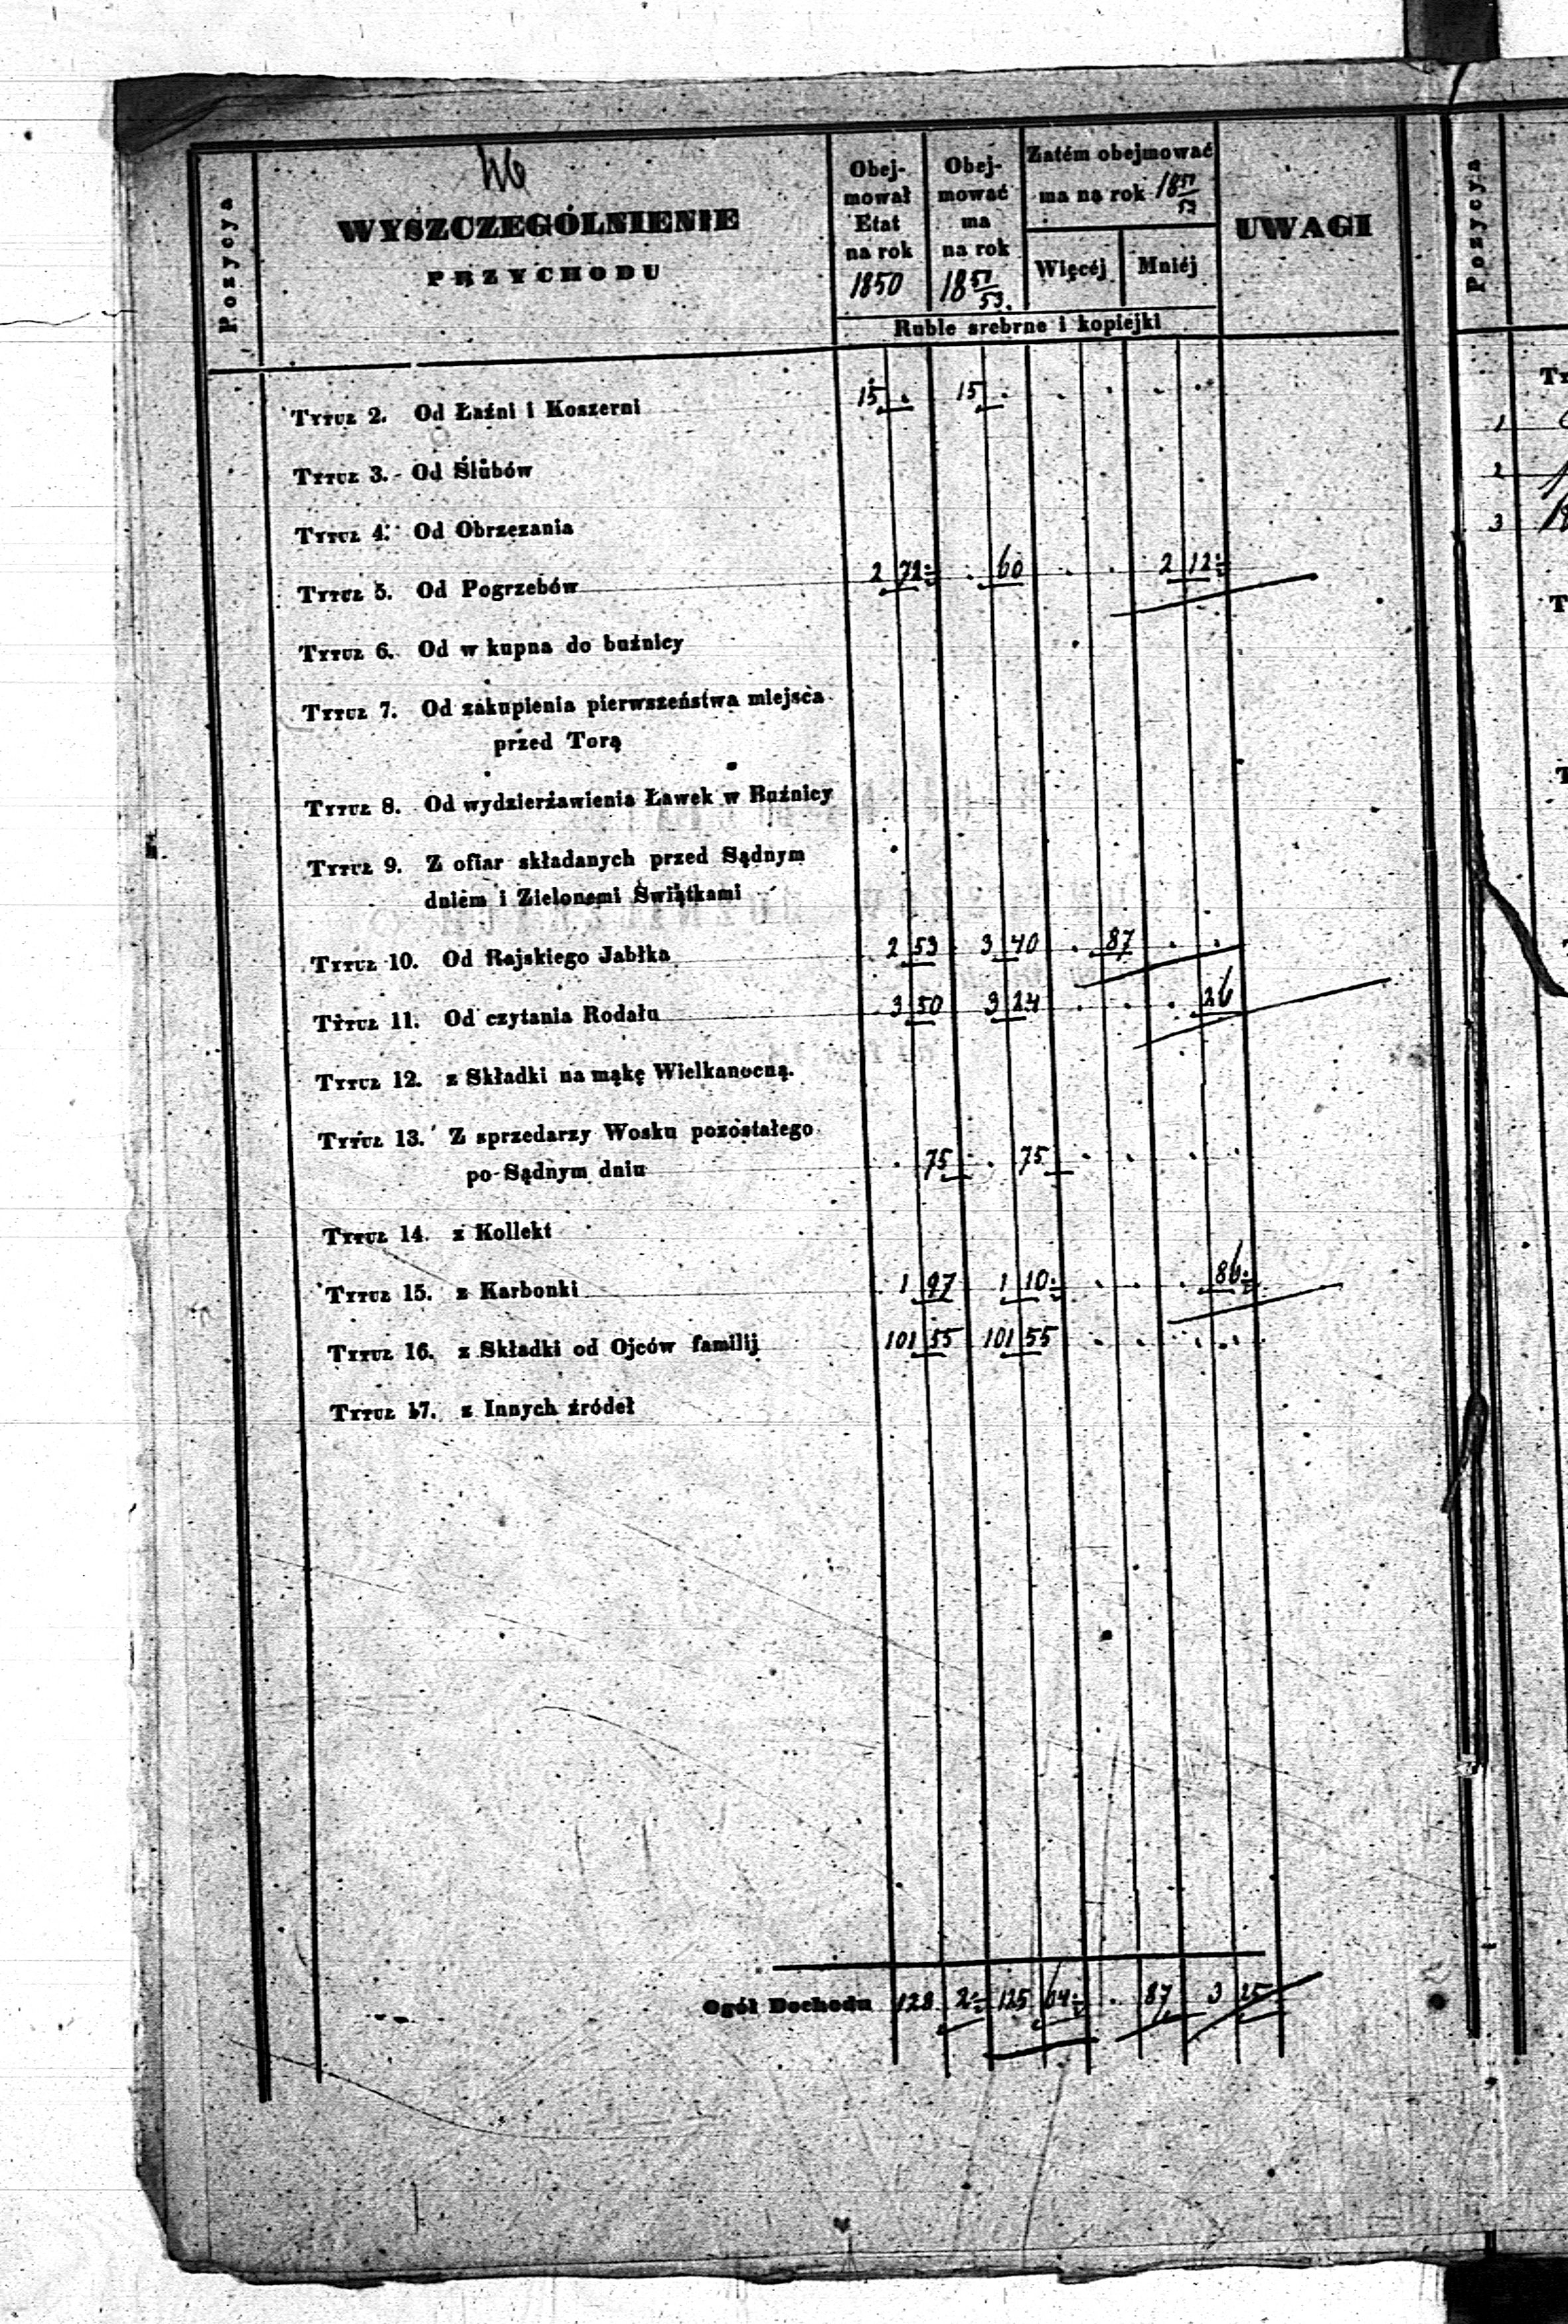 46
Pozycya
WYSZCZEGÓLNIENIE
PRZYCHODU
Obej-
mował
Etat
na rok
1850
Obej-
mować
ma
na rok
18 51/53.
Zatém obejmować
ma na rok 18 51/53
Więcéj Mniéj
Ruble srebrne i kopiejki
UWAGI
Pozycya
TYTUŁ 2. Od Łaźni i Koszerni 15 . 15 . . . . .
TYTUŁ 3. Od Ślubów
TYTUŁ 4. Od Obrzezania
TYTUŁ 5. Od Pogrzebów 2 72 ÷ . 60 . . 2 12 ÷
TYTUŁ 6. Od w kupna do buźnicy
TYTUŁ 7. Od zakupienia pierwszeństwa miejsca
przed Torą
TYTUŁ 8. Od wydzierżawienia Ławek w Buźnicy
TYTUŁ 9. Z ofiar składanych przed Sądnym
dniem i Zielonemi Świątkami
TYTUŁ 10. Od Rajskiego Jabłka 2 53 3 40 . 87 . .
TYTUŁ 11. Od czytania Rodału 3 50 3 24 . . . 26
TYTUŁ 12. z Składki na mąkę Wielkanocną.
TYTUŁ 13. Z sprzedarzy Wosku pozostałego
po Sądnym dniu . 75 . 75 . . . .
TYTUŁ 14. z Kollekt
TYTUŁ 15. z Karbonki 1 97 1 10 ÷ . . . 86 ÷
TYTUŁ 16. z Składki od Ojców familij 101 55 101 55 . . . .
TYTUŁ 17. z Innych źródeł
Ogół Dochodu 128 2 ÷ 125 64 ÷ . 87 3 25
1
2
3